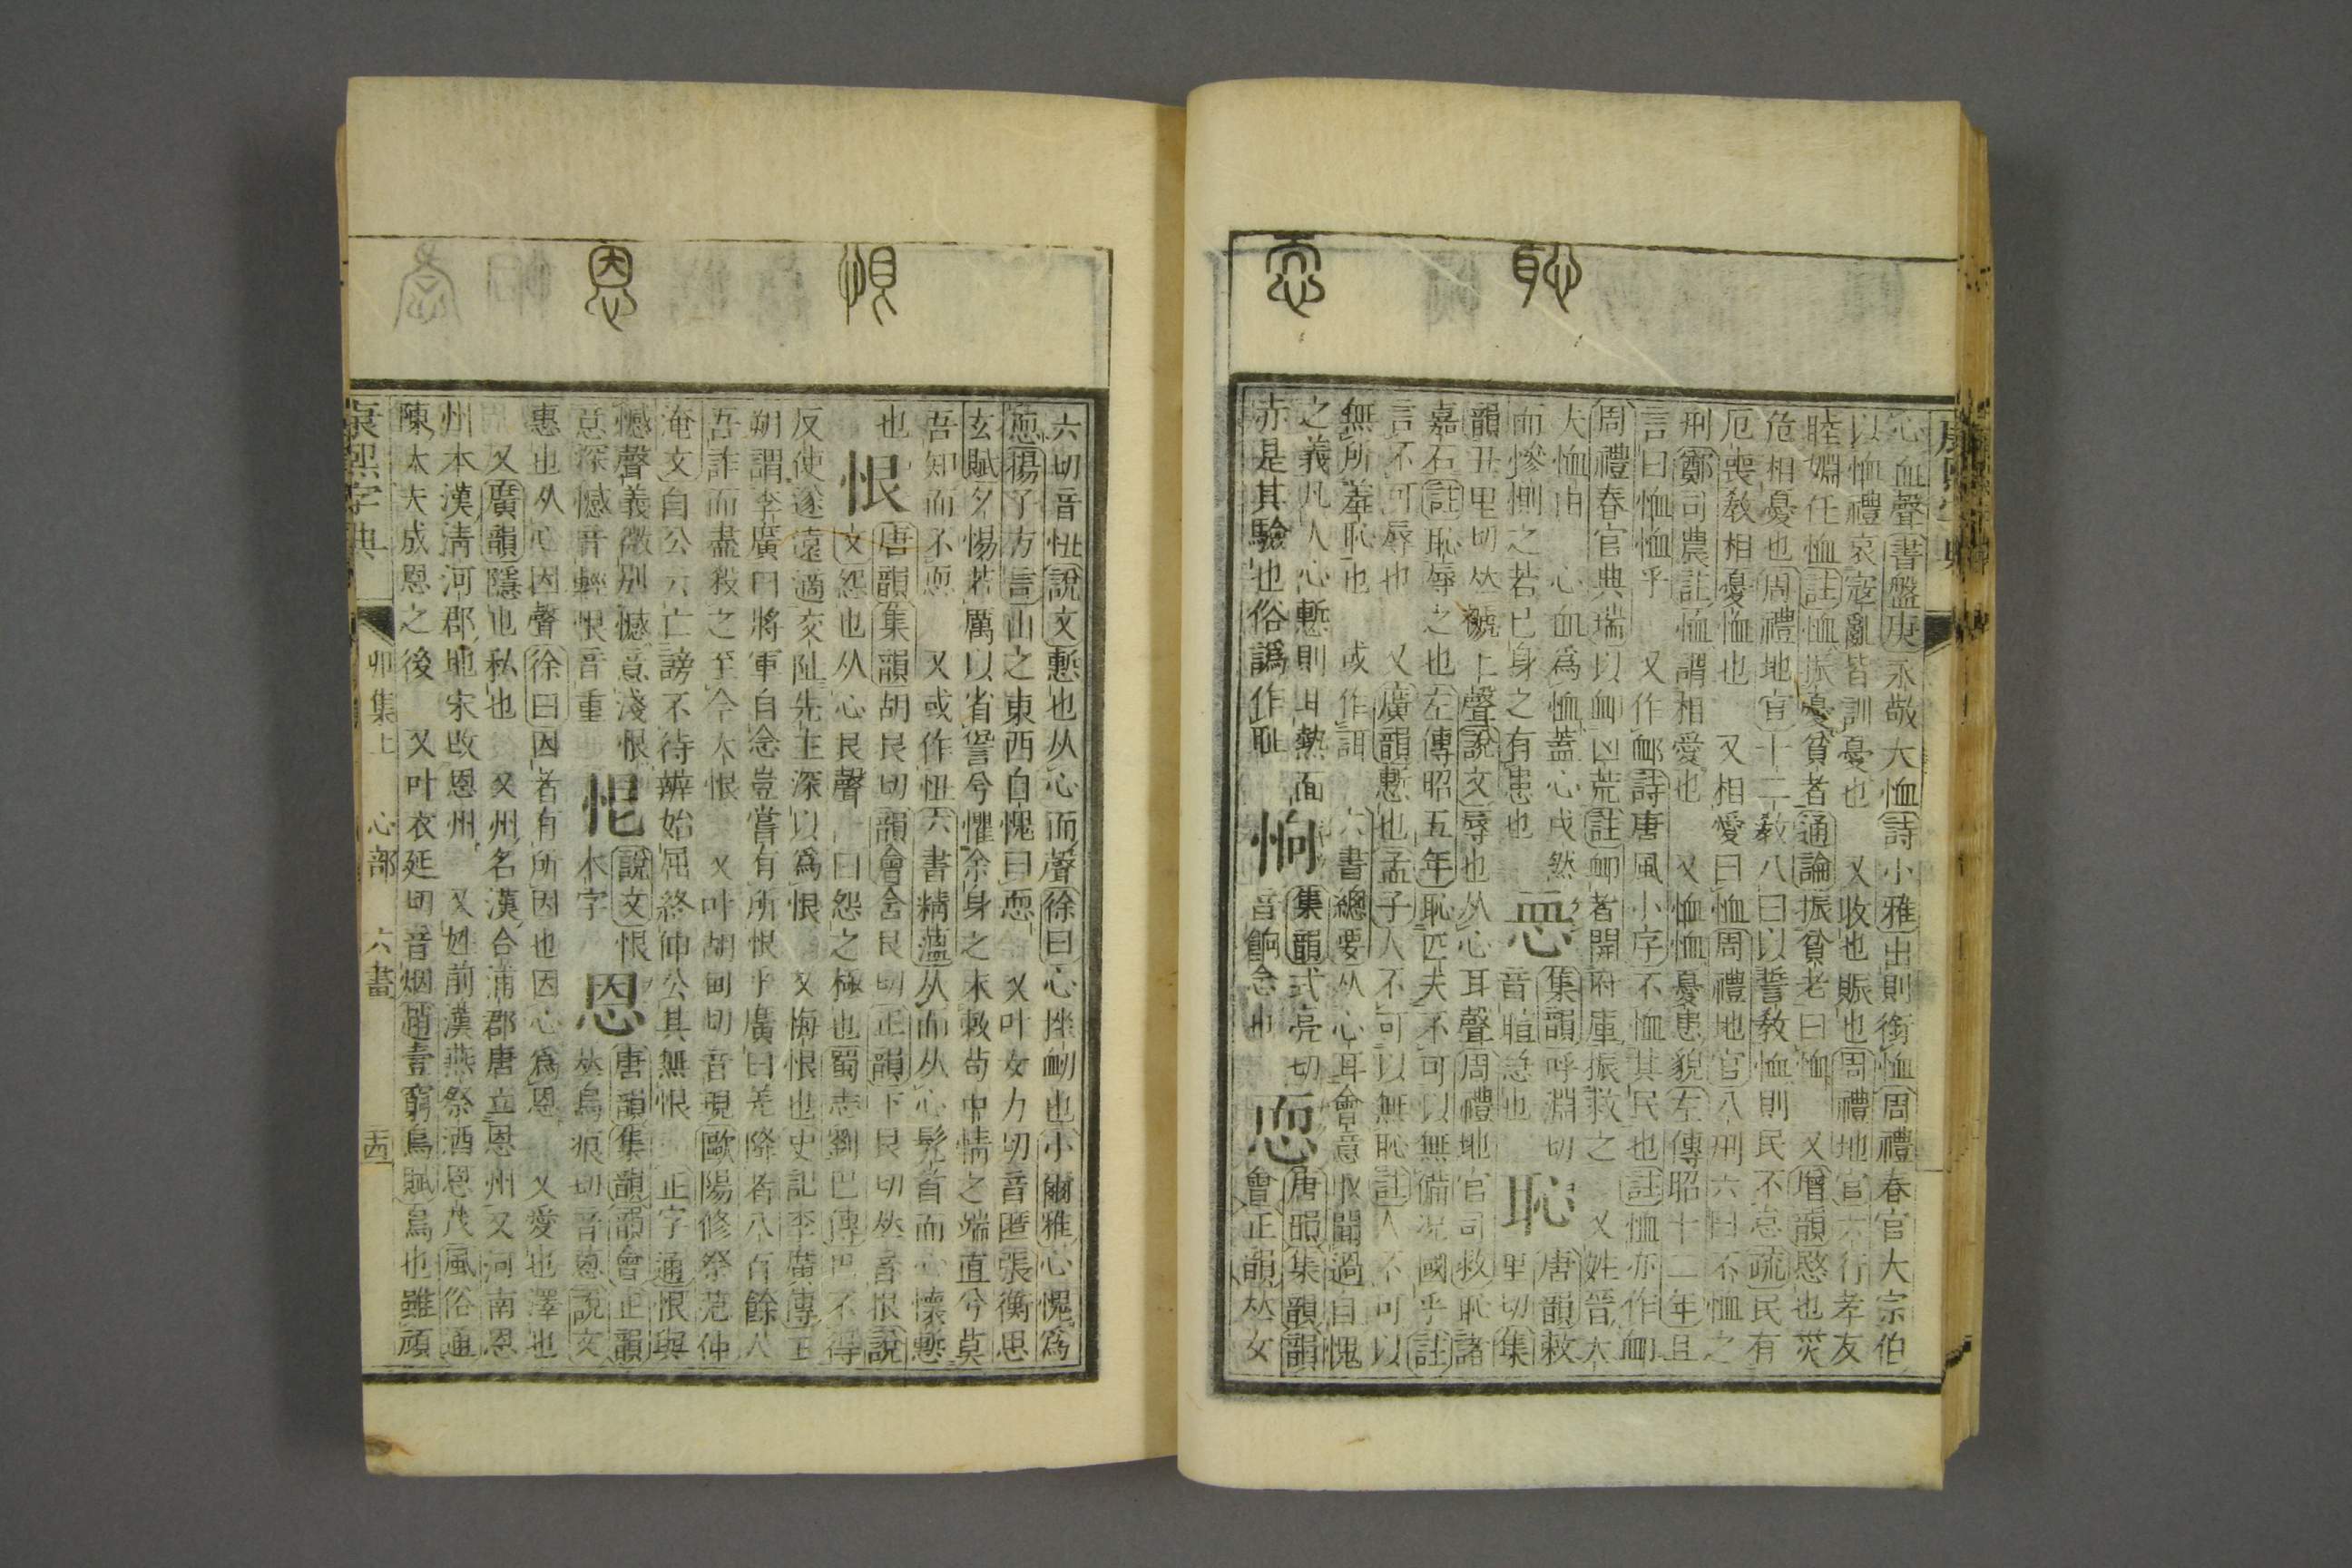 恥
恧
心血聲書盤庚永敬大恤詩小雅出則銜恤周禮春官大宗伯
以恤禮哀寇亂皆訓憂也 又收也賑也周禮地官六行孝友
睦婣任恤註恤振憂貧者通論振貧老曰恤 又增韻愍也災
危相憂也周禮地官十二敎八曰以誓敎恤則民不怠疏民有
厄喪敎相憂恤也 又相愛曰恤周禮地官八刑六曰不恤之
刑鄭司農註恤謂相愛也 又恤恤憂患貌左傳昭十二年且
言曰恤恤乎 又作卹詩唐風小序不恤其民也註恤亦作卹
周禮春官典瑞以卹凶荒註卹者開府庫振救之 又姓晉大
夫恤由 心血爲恤蓋心戌然
而慘惻之若已身之有患也
集韻呼淵切
音暄忘也
恥
唐韻敕
里切集
韻丑里切𠀤褫上聲說文辱也从心耳聲周禮地官司救恥諸
嘉石註恥辱之也左傳昭五年恥匹夫不可以無備况國乎註
言不可辱也 又廣韻慙也孟子人不可以無恥註人不可以
無所羞恥也 或作誀 六書總要从心耳會意取聞過自愧
之義凡人心慙則耳熱面
亦是其驗也俗譌作耻
恦
集韻式亮切
音餉念也
恧
唐韻集韻韻
會正韻𠀤女
恨
恩
六切音忸說文慙也从心而聲徐曰心挫衂也小爾雅心愧爲
恧揚子方言山之東西自愧曰恧 又叶女力切音匿張衡思
玄賦夕惕若厲以省諐兮懼余身之未敕苟中情之端直兮莫
吾知而不恧 又或作忸六書精薀从而从心髡首而心懷慙
也
恨
唐韻集韻胡艮切韻會舍艮切正韻下艮切𠀤音恨說
文怨也从心艮聲 曰怨之極也蜀志劉巴傳巴不得
反使遂遠適交阯先主深以爲恨 又悔恨也史記李廣傳王
朔謂李廣曰將軍自念豈嘗有所恨乎廣曰羌降者八百餘人
吾詐而盡殺之至今大恨 又叶胡甸切音現歐陽修祭范仲
淹文自公云亡謗不待辨始屈終伸公其無恨 正字通恨與
憾聲義微別憾意淺恨
意深憾音輕恨音重
恾
說文恨
本字
恩
唐韻集韻韻會正韻
𠀤烏痕切音蒽說文
惠也从心因聲徐曰因者有所因也因心爲恩 又愛也澤也
又廣韻隱也私也 又州名漢合浦郡唐立恩州又河南恩
州本漢淸河郡地宋改恩州 又姓前漢燕祭酒恩茂風俗通
陳大夫成恩之後 又叶衣延切音烟趙壹窮鳥賦鳥也雖頑
康熙字典 卯集上 心部 六畫